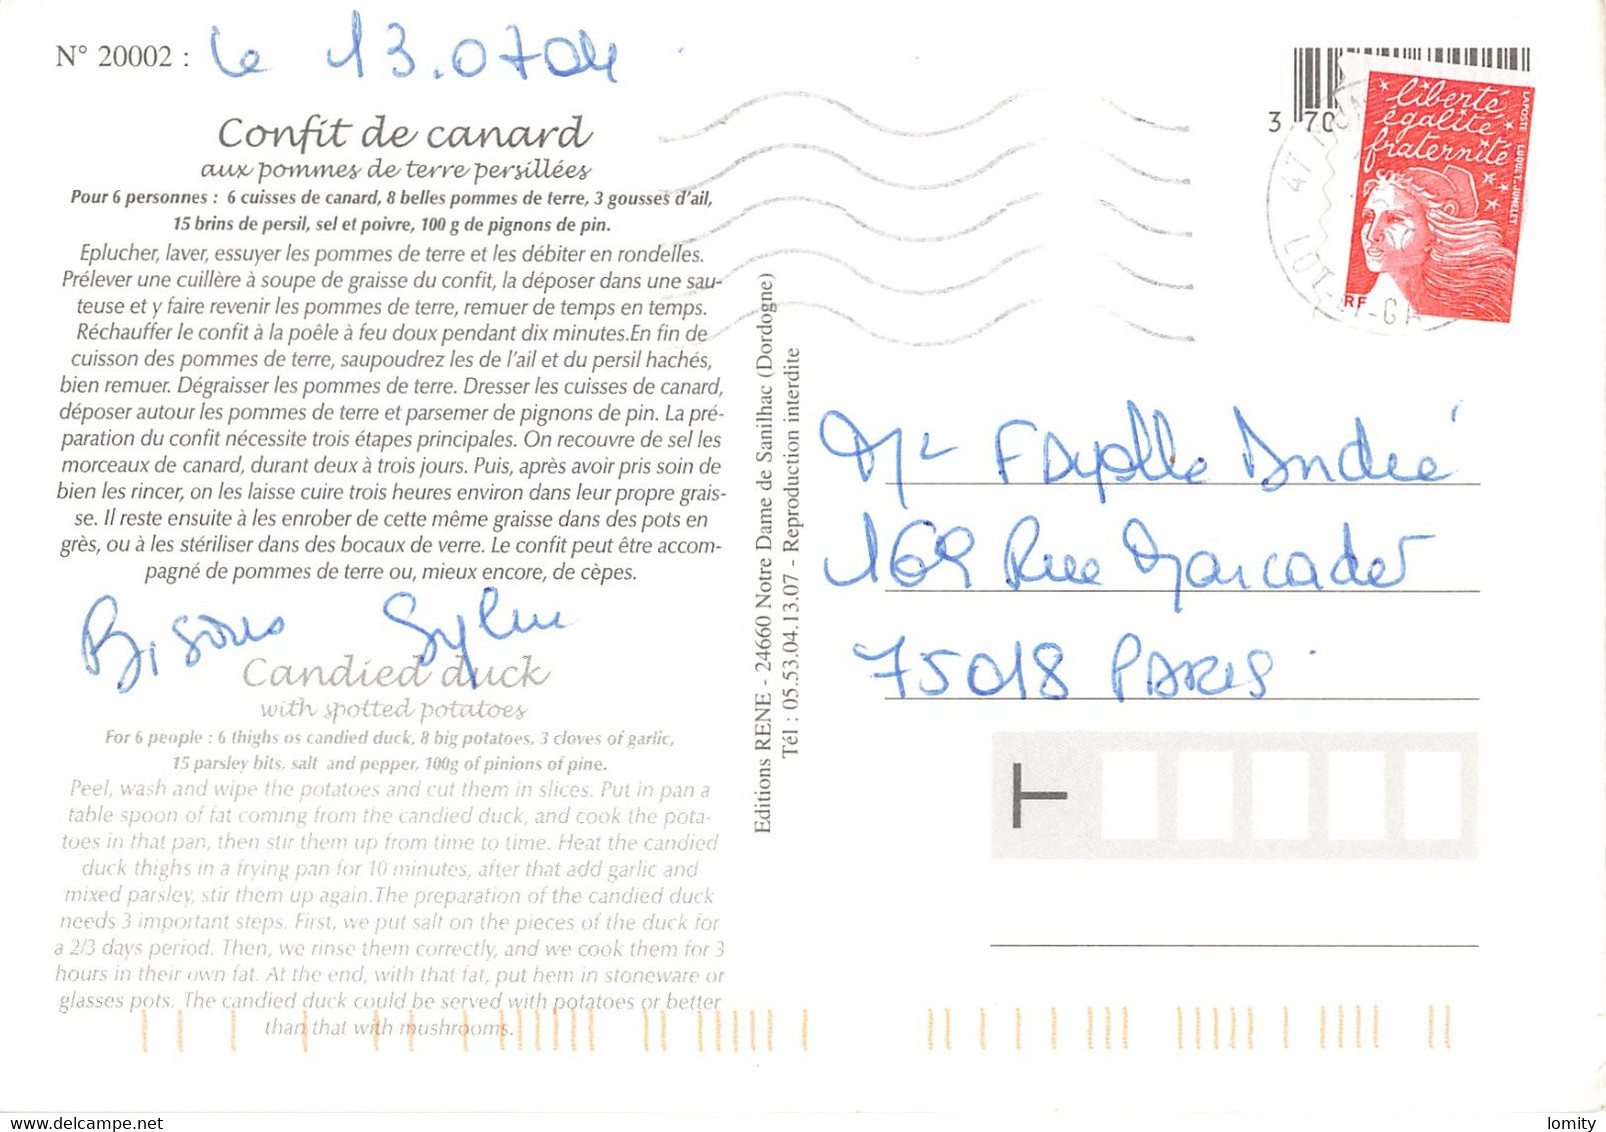 N° 20002 : Le 13.0704
Confit de canard
aux pommes de terre persillées
Pour 6 personnes : 6 cuisses de canard, 8 belles pommes de terre, 3 gousses d'ail,
15 brins de persil, sel et poivre, 100 g de pignons de pin.
Eplucher, laver, essuyer les pommes de terre et les débiter en rondelles.
Prélever une cuillère à soupe de graisse du confit, la déposer dans une sau-
teuse et y faire revenir les pommes de terre, remuer de temps en temps.
Réchauffer le confit à la poêle à feu doux pendant dix minutes.En fin de
cuisson des pommes de terre, saupoudrez les de l'ail et du persil hachés,
bien remuer. Dégraisser les pommes de terre. Dresser les cuisses de canard,
déposer autour les pommes de terre et parsemer de pignons de pin. La pré-
paration du confit nécessite trois étapes principales. On recouvre de sel les
morceaux de canard, durant deux à trois jours. Puis, après avoir pris soin de
bien les rincer, on les laisse cuire trois heures environ dans leur propre grais-
se. Il reste ensuite à les enrober de cette même graisse dans des pots en
grès, ou à les stériliser dans des bocaux de verre. Le confit peut être accom-
pagné de pommes de terre ou, mieux encore, de cèpes.
Bisous Sylvie
Candied duck
with spotted potatoes
For 6 people : 6 thighs os candied duck, 8 big potatoes, 3 cloves of garlic,
15 parsley bits, salt and pepper, 100g of pinions of pine.
Peel, wash and wipe the potatoes and cut them in slices. Put in pan a
table spoon of fat coming from the candied duck, and cook the pota-
toes in that pan, then stir them up from time to time. Heat the candied
duck thighs in a frying pan for 10 minutes, after that add garlic and
mixed parsley, stir them up again.The preparation of the candied duck
needs 3 important steps. First, we put salt on the pieces of the duck for
a 2/3 days period. Then, we rinse them correctly, and we cook them for 3
hours in their own fat. At the end, with that fat, put hem in stoneware or
glasses pots. The candied duck could be served with potatoes or better
than that with mushrooms.
Editions RENE - 24660 Notre Dame de Sanilhac (Dordogne)
Tél : 05.53.04.13.07 - Reproduction interdite
3 70
liberté
égalité
fraternité
LAPOSTE LUQUET-JUMELET
RF
47
LOT-ET-GA
Mr Fayolle André
169 Rue Marcadet
75018 PARIS
delcampe.net
lomity